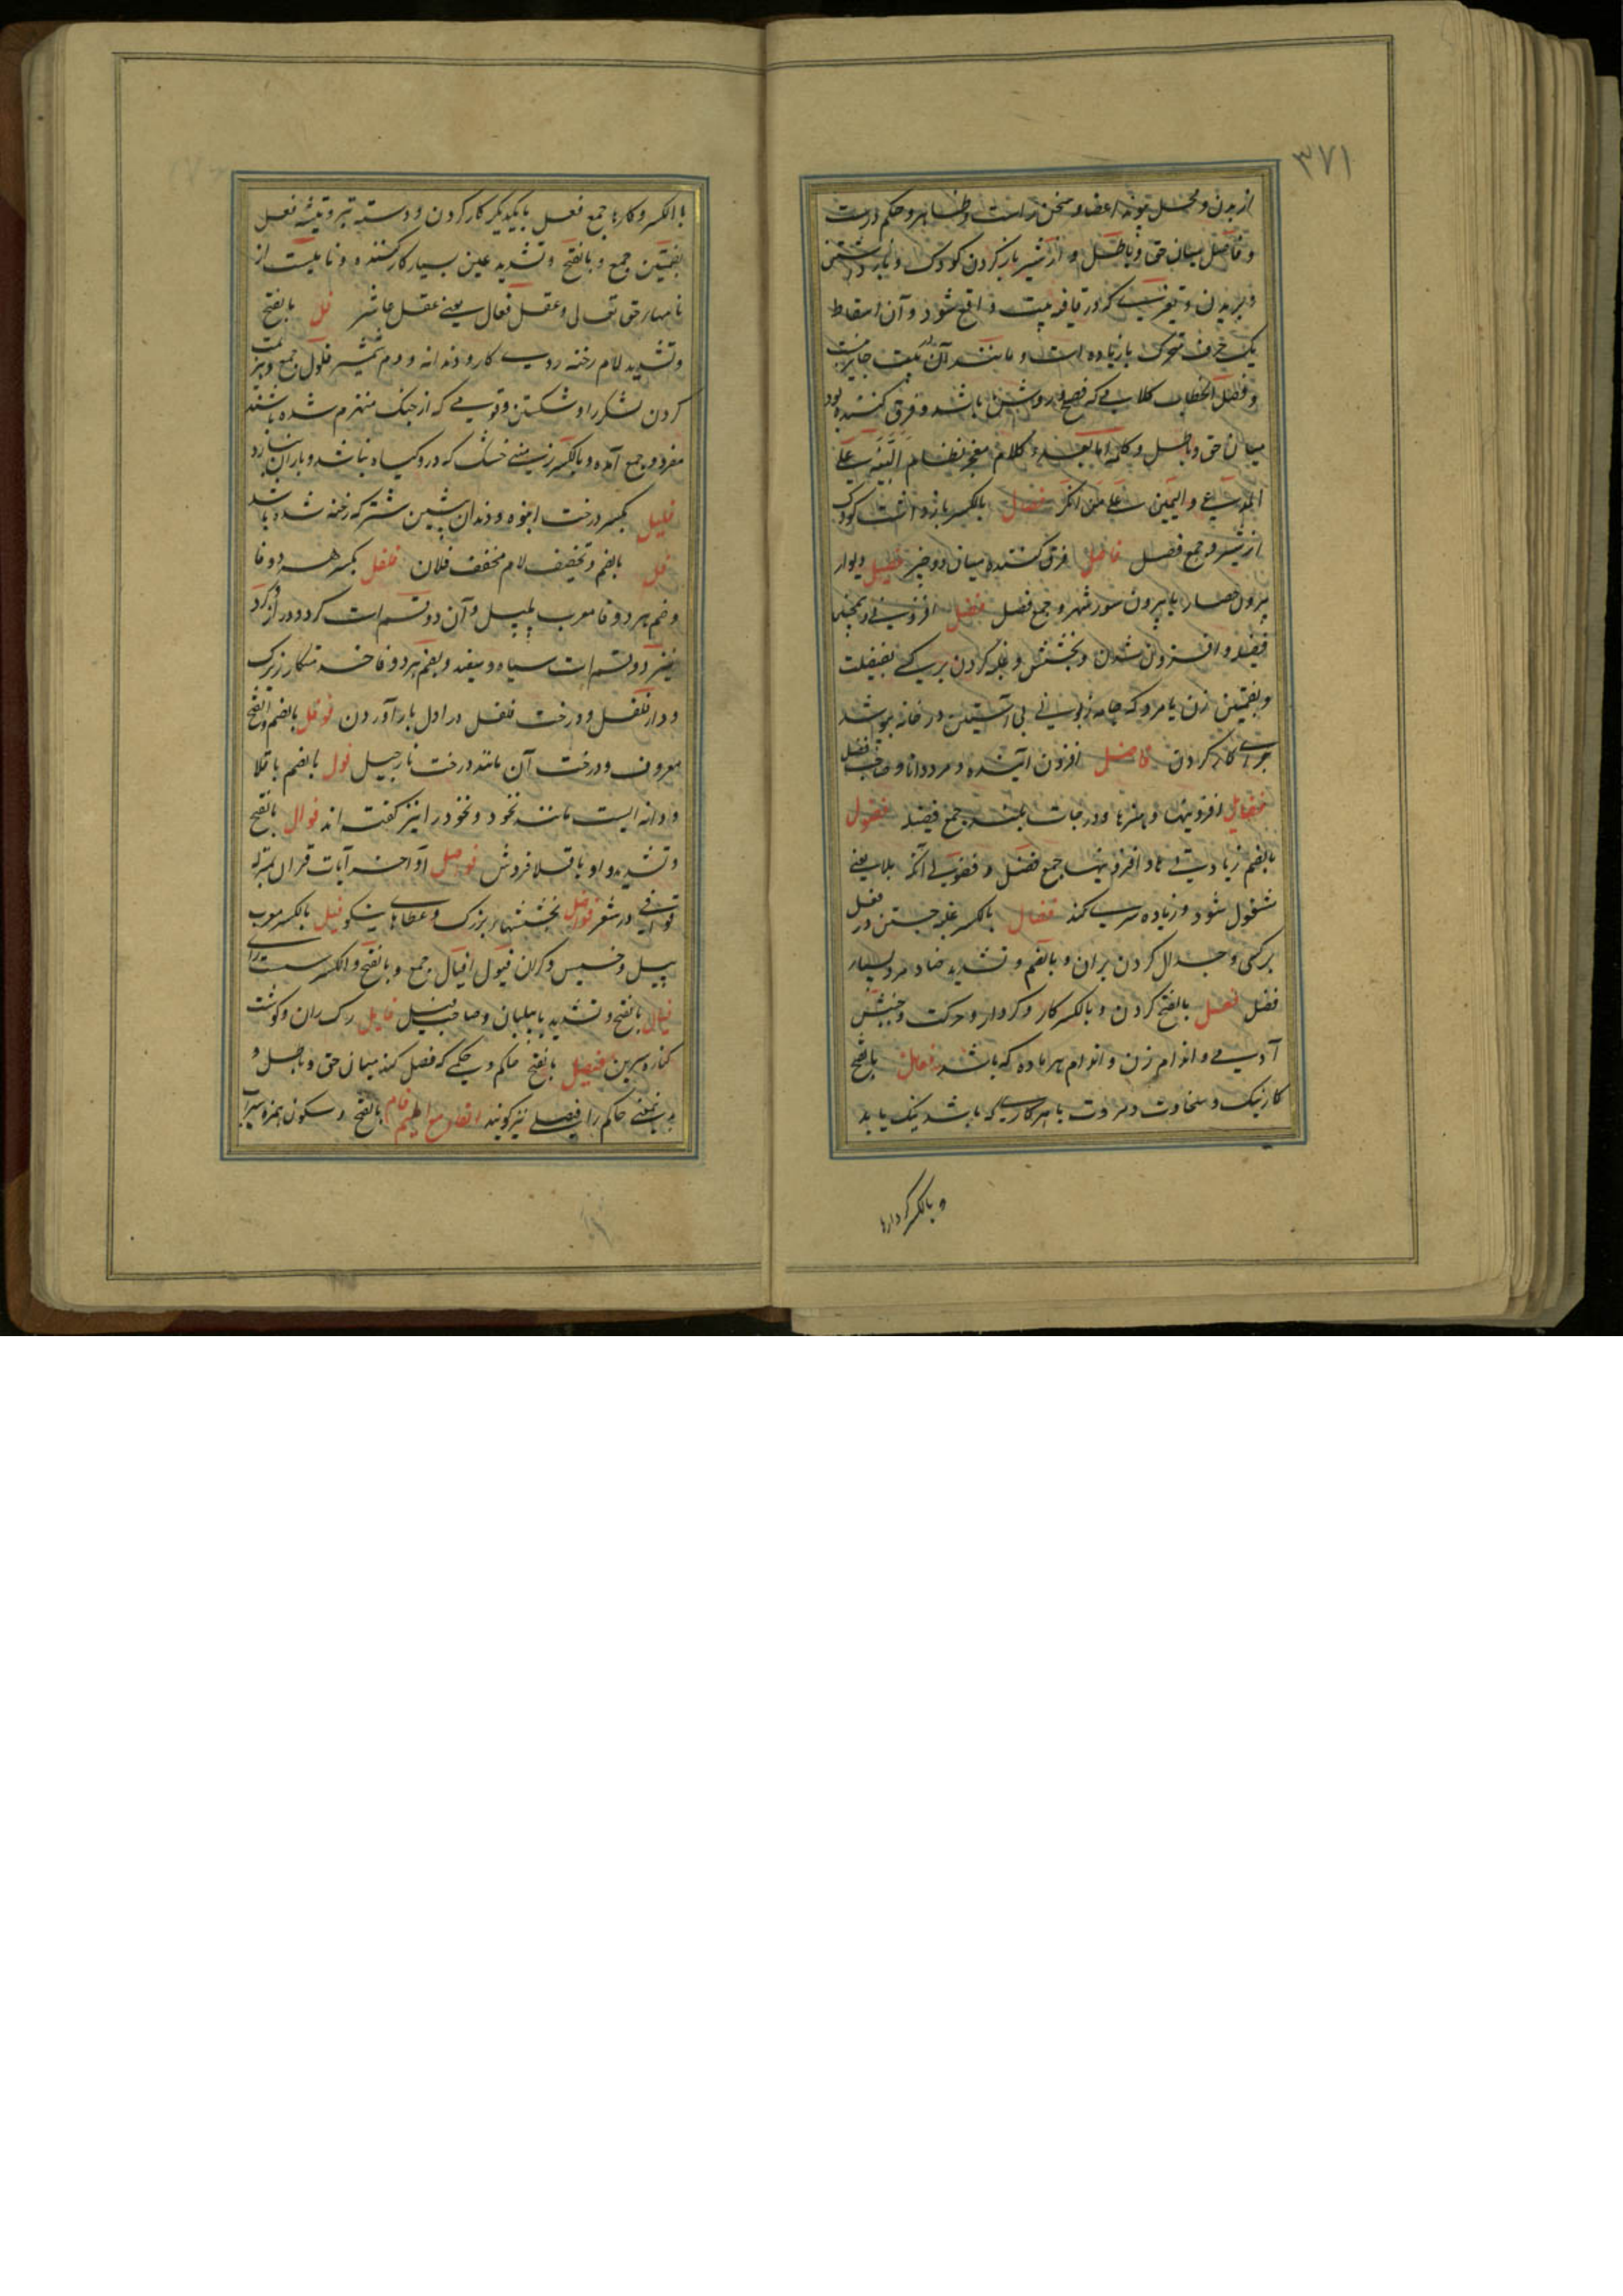 ٣٧١
از بدن و محل پیوند اعضا و سخن راست و ظاهر و حکم درست
و فاصل میان حق و باطل و از شیر باز کردن کودک و باز داشتن
و بریدن و تغییری که در قافیه بیت واقع شود و آن اسقاط
یک حرف متحرک یا زیاده است و مانند آن بیت جایز نیست
و فصل الخطاب کلامی که فصیح و روشن باشد و فرق کننده بود
میان حق و باطل و کلمه اما بعد و کلام معجز نظام البینة علی
المدعی و الیمین علی من انکر فصال بالکسر باز داشت کودک
از شیر و جمع فصل فاصل فرق کننده میان دو چیز فصیل دیوار
بیرون حصار یا بیرون سور شهر و جمع فصل فضل افزونی و همچنین
فضیله و افزون شدن و بخشش و غلبه کردن بر کسی بفضیلت
و بضمتین زن یا مرد که جامه زبونی بی آستین در خانه پوشد
برای کار کردن فاضل افزون آینده و مرد دانا و صاحب فضل
فضایل افزونیها و هنرها و درجات بلند جمع فضیله فضول
بالضم زیادتی ها و افزونیها جمع فضل و فضولی آنکه بلایعنی
مشغول شود و زیاده سری کند فضال بالکسر غلبه جستن در فضل
بر کسی و جدال کردن بران و بالضم و تشدید ضاد مرد بسیار
فضل فعل بالفتح کردن و بالکسر کار و کردار و حرکت و جنبش
آدمی و اندام زن و اندام هر ماده که باشد فعال بالفتح
کار نیک و سخاوت و مروت یا هر کاری که باشد نیک یا بد
و بالکسر کردارها
بالکسر و کارها جمع فعل بایکدیگر کار کردن و دسته تبر و تیشه فعل
بضمتین جمع و بالفتح و تشدید عین بسیار کار کننده و نامیست از
نامهار حق تعالی و عقل فعال یعنی عقل عاشر فل بالفتح
و تشدید لام رخنه روی کارد و دندانه و دم شمشیر فلول جمع و هزیمت
کردن لشکر را و شکستن و قومی که از جنگ منهزم شده باشند
مفرد و جمع آمده و بالکسر زمینی خشک که درو گیاه نباشد و باران نبارد
فلیل بکسر درخت انبوه و دندان پیشین شتر که رخنه شده باشد
فل بالضم و تخفیف لام مخفف فلان فلفل بکسر هر دو فا
و ضم هر دو فا معرب پلپل و آن دو قسم است گرد و دراز و گرد
نیز دو قسم است سیاه و سفید و بضم هر دو فا خدمتکار زیرک
و دار فلفل و درخت فلفل در اول بار آوردن فوفل بالضم و الفتح
معروف و درخت آن مانند درخت نارجیل فول بالضم باقلا
و او دانه ایست مانند نخود و نخود را نیز گفته اند فوال بالفتح
و تشدید واو باقلا فروش فواصل اواخر آیات قران بمنزله
قوافی در شعر فواضل بخششهای بزرگ و عطاهای نیکو فیل بالکسر معرب
پیل و خسیس و گران فیول افیال جمع و بالفتح و الکسر سست رای
فیال بالفتح و تشدید یا فیلبان و صاحب فیل فایل رگ ران و گوشت
کناره سرین فیصل بالفتح حاکم و حکمی که فصل کند میان حق و باطل و
بدین معنی حاکم را فیصلی نیز گویند الفاء مع المیم فام بالفتح و سکون همزه سیراب